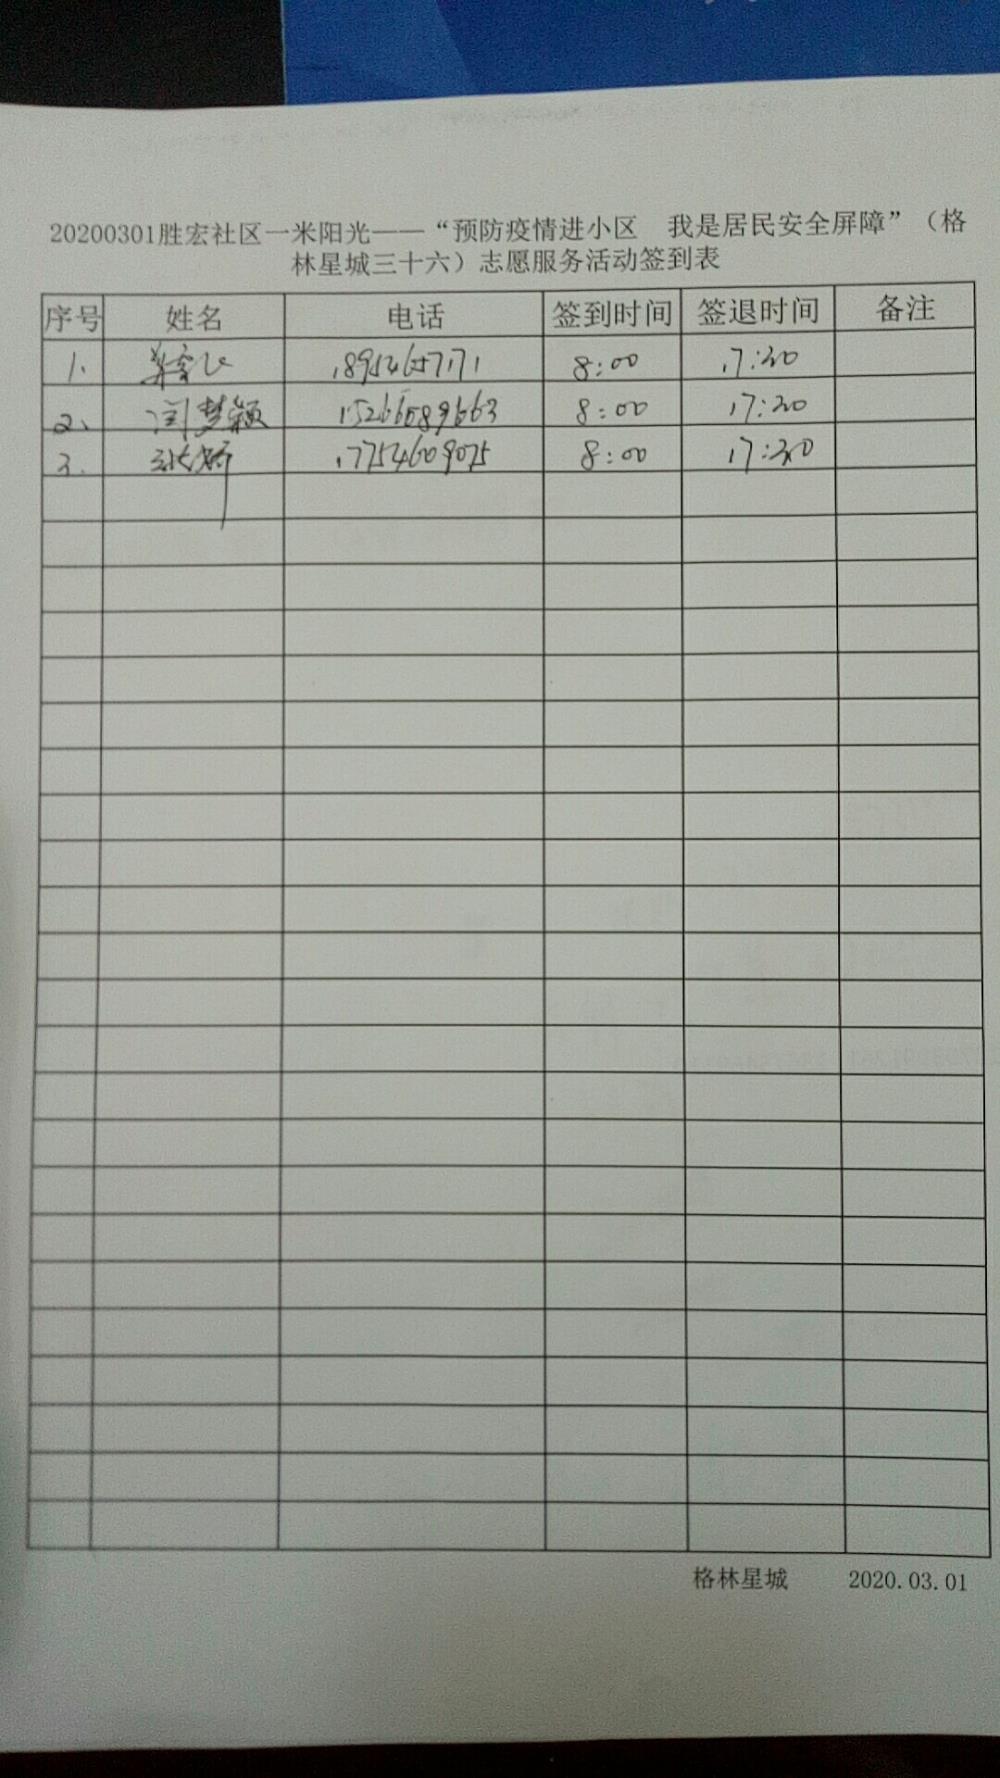 20200301胜宏社区一米阳光——“预防疫情进小区　我是居民安全屏障”（格
林星城三十六）志愿服务活动签到表
序号 姓名 电话 签到时间 签退时间 备注
1. 18954657171 8:00 17:30
2、 闫梦颖 15266089663 8:00 17:30
3. 张娇 17754609075 8:00 17:30
格林星城 2020.03.01